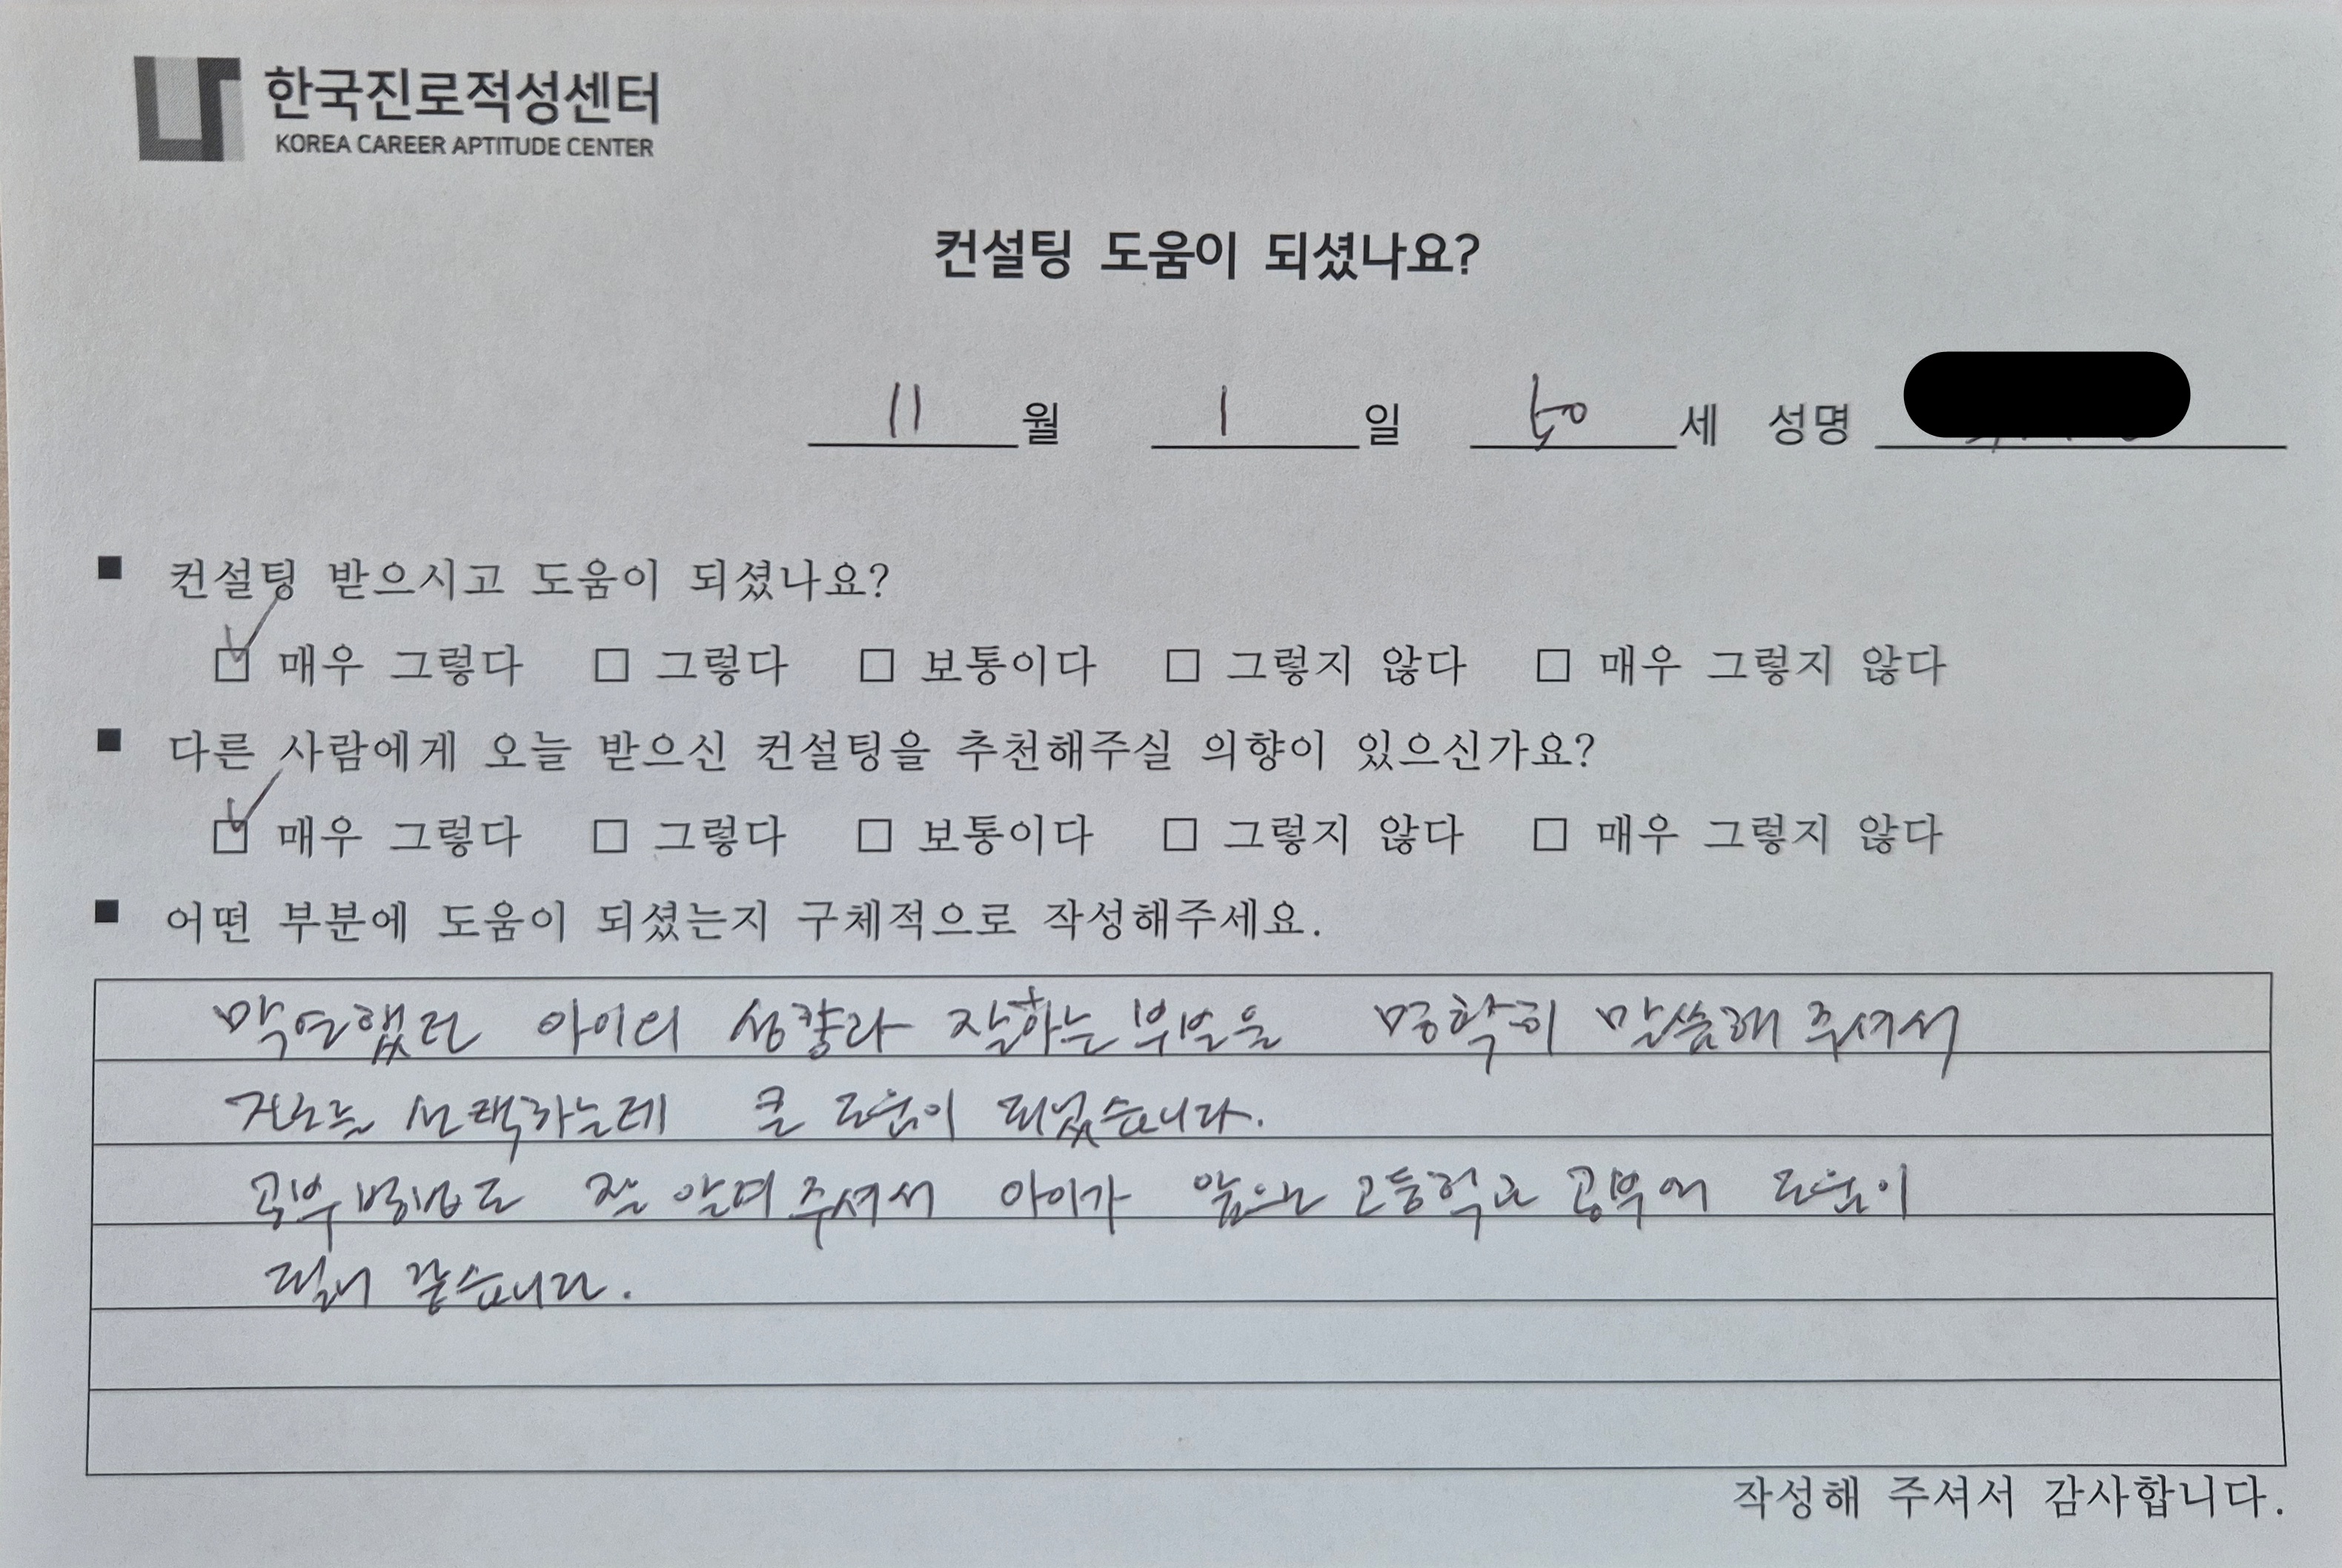 한국진로적성센터
KOREA CAREER APTITUDE CENTER
컨설팅 도움이 되셨나요?
11 월 1 일 50 세 성명
■ 컨설팅 받으시고 도움이 되셨나요?
☑ 매우 그렇다 □ 그렇다 □ 보통이다 □ 그렇지 않다 □ 매우 그렇지 않다
■ 다른 사람에게 오늘 받으신 컨설팅을 추천해주실 의향이 있으신가요?
☑ 매우 그렇다 □ 그렇다 □ 보통이다 □ 그렇지 않다 □ 매우 그렇지 않다
■ 어떤 부분에 도움이 되셨는지 구체적으로 작성해주세요.
막연했던 아이의 성향과 잘하는 부분을 명확히 말씀해 주셔서
진로를 선택하는데 큰 도움이 되었습니다.
공부 방법도 잘 알려 주셔서 아이가 앞으로 고등학교 공부에 도움이
될거 같습니다.
작성해 주셔서 감사합니다.